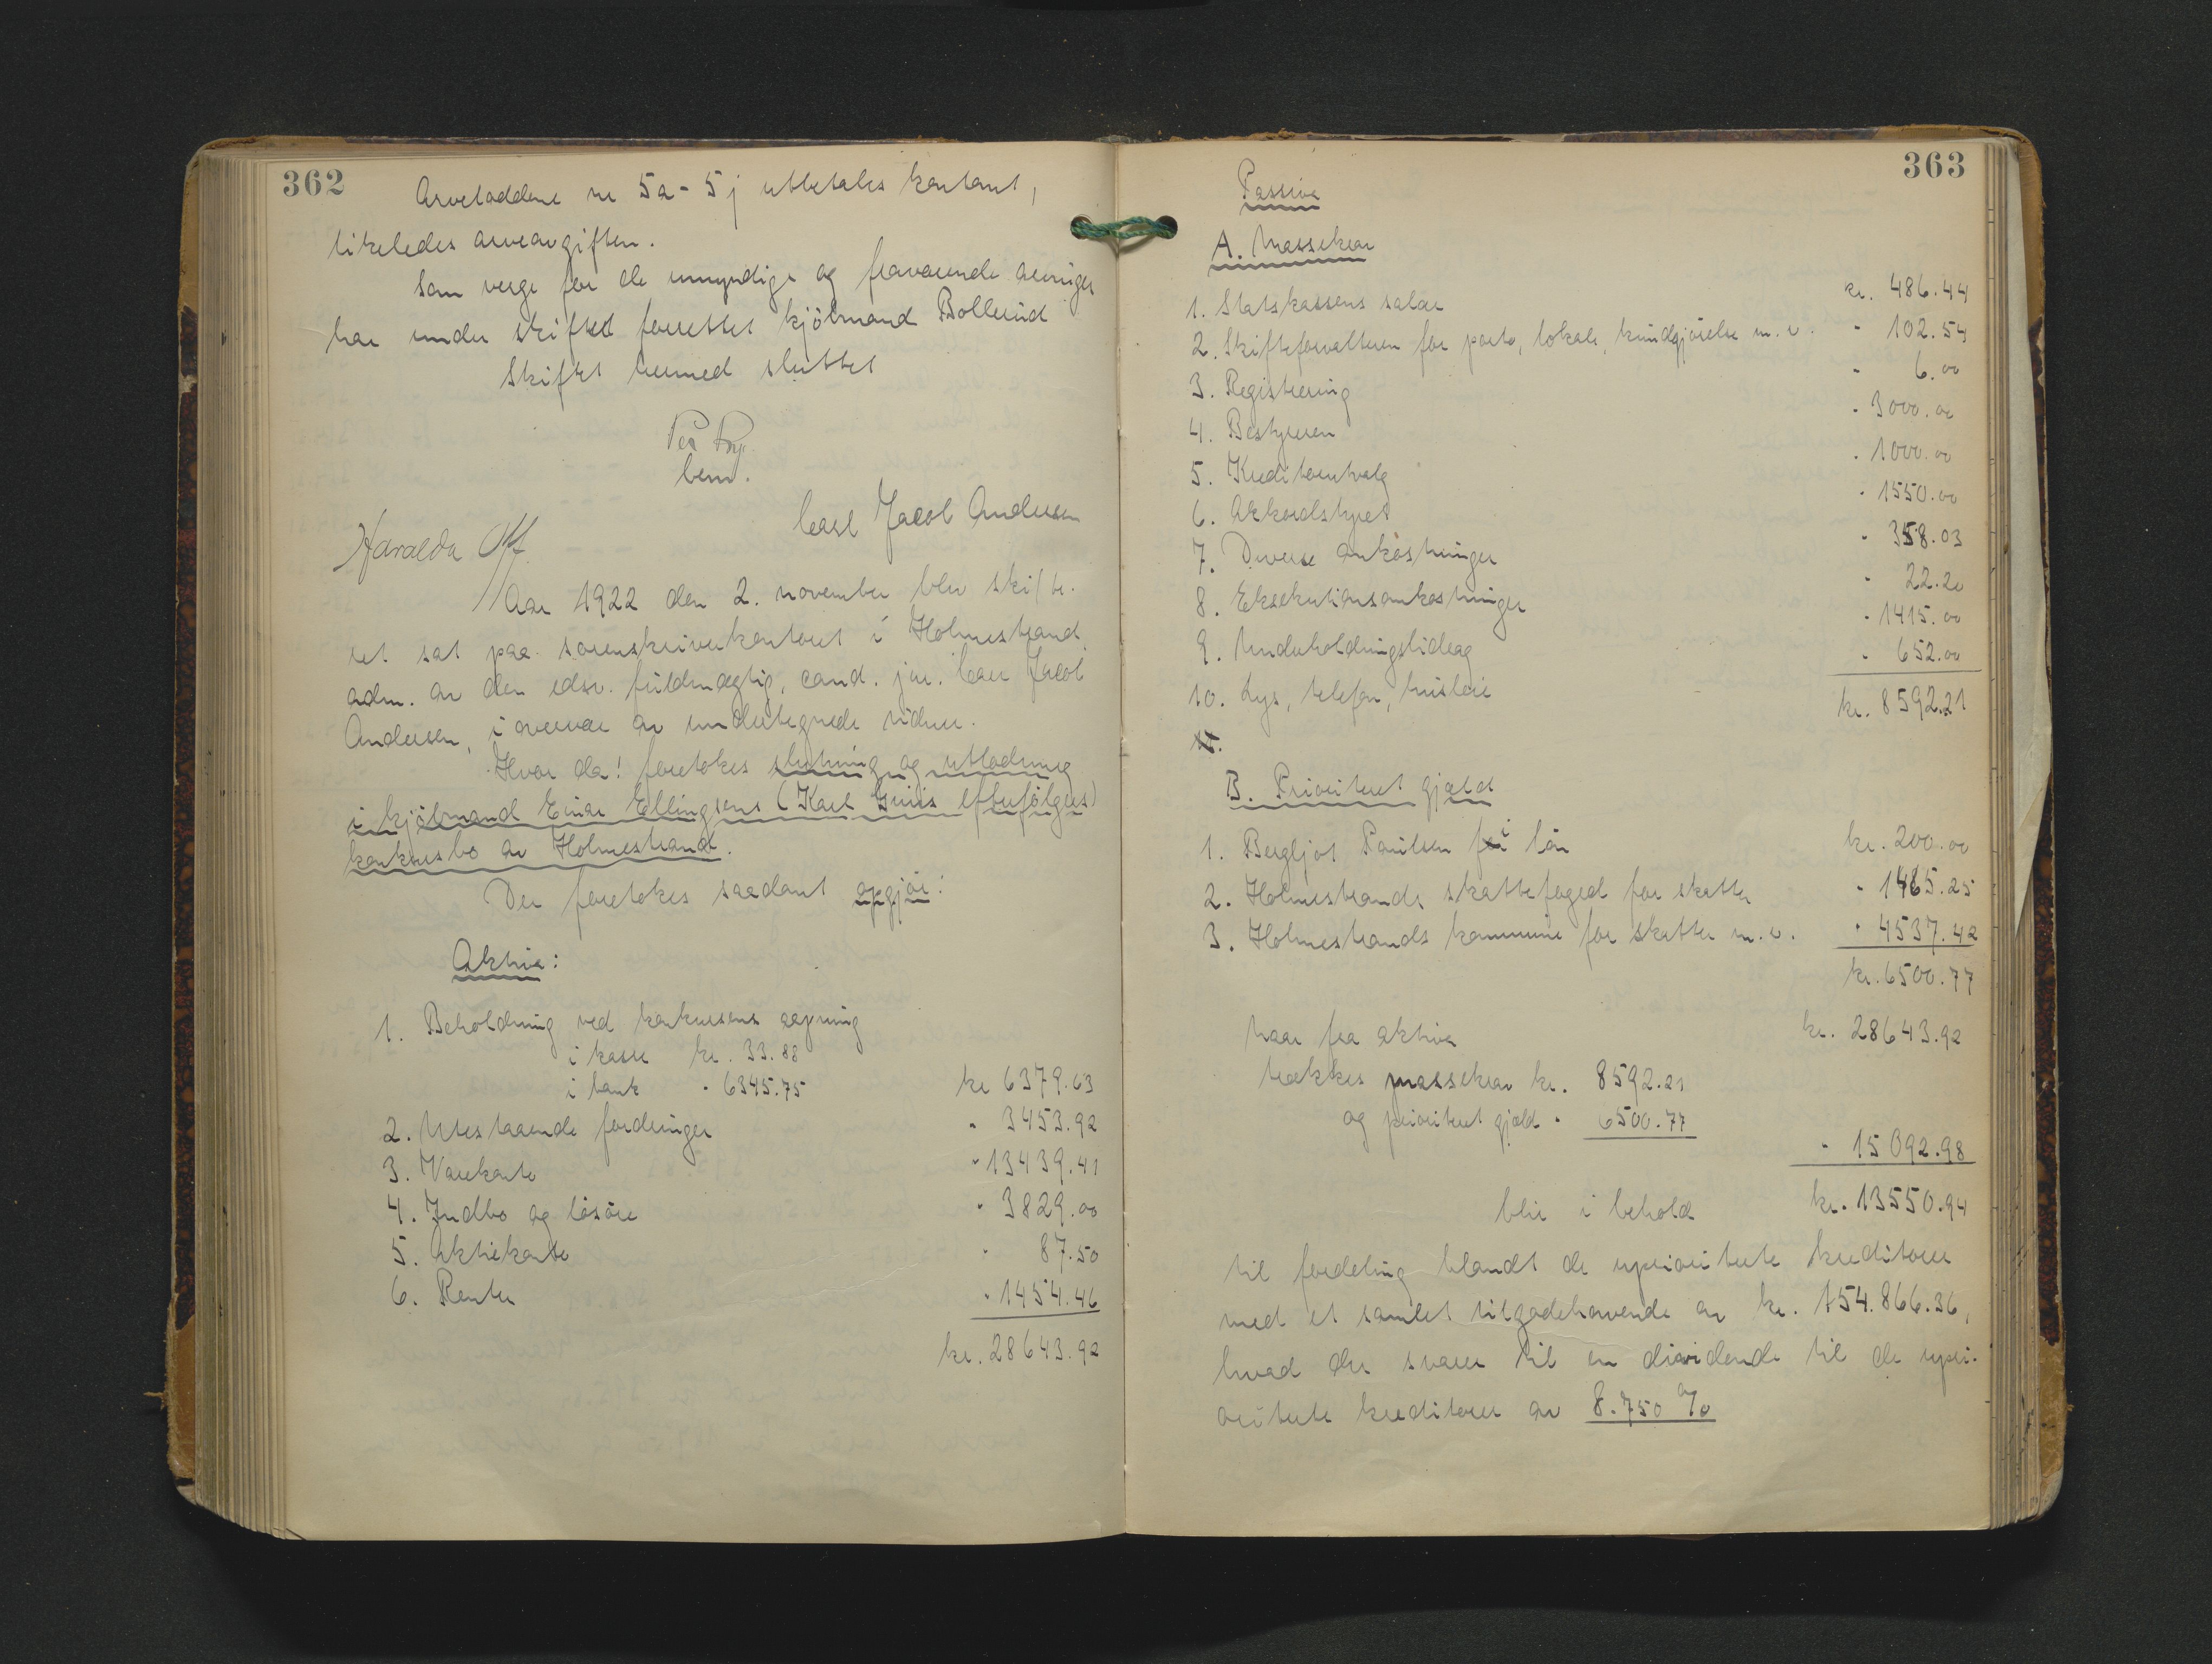 362
Arveloddene nr 5a - 5j utbetales kontant,
likeledes arveavgiften.
Som verge for de umyndige og fraværende arvinger
har under skiftet forrettet kjöbmand Bollerud
Skiftet hermed sluttet
Per
bem.
Carl Jacob Andersen
Haralda
Aar 1922 den 2. november blev skifte-
ret sat paa sorenskriverkontoret i Holmestrand
adm. av den edsv. fuldmægtig, cand. jur. Carl Jacob
Andersen, i overvær av undertegnede vidner.
Hvor da! foretokes slutning og utlodning
i kjöbmand Einar Ellingsens (Karl Eftefölgers)
konkursbo av Holmestrand.
Der foretokes saadant opgjör:
Aktiva:
1. Beholdning ved konkursens aapning
i kasse kr. 33.88
i bank - 6345.75 kr 6379.63
2. Utestaaende fordringer " 3453.92
3. Varekonto " 13439.41
4. Indbo og lösöre " 3829.00
5. Aktiekonto " 87.50
6. Renter " 1454.46
kr. 28643.92
363
Passiva
A. Massekrav
1. Statskassens salær kr. 486.44
2. Skifteforvalteren for porto, lokale, kundgjörelse m.v. " 102.54
3. Registrering " 6.00
4. Bestyreren " 3000.00
5. Kreditorutvalg " 1000.00
6. Akkordstyret " 1550.00
7. Diverse omkostninger " 358.03
8. Eksekutionsomkostninger " 22.20
9. Underholdningsbidrag " 1415.00
10. Lys, telefon, husleie " 652.00
kr. 8592.21
B. Prioritert gjæld
1. Bergljot Paulsen i lön kr. 200.00
2. Holmestrands skattefoged for skatter " 1465.25
3. Holmestrands kommune for skatter m.v. " 4537.42
kr. 6500.77
Naar fra aktiva kr. 28643.92
trækkes massekrav kr. 8592.21
og prioritert gjæld " 6500.77
" 15092.98
blir i behold kr. 13550.94
til fordeling blandt de uprioriterte kreditorer
med et samlet tilgodehavende av kr. 154.866.36,
hvad der svarer til en dividende til de upri-
oriterte kreditorer av 8.750 %